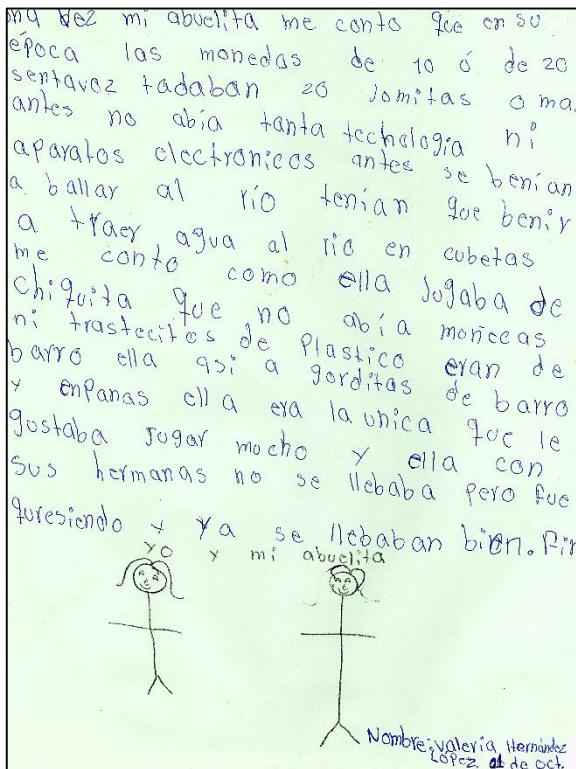 una dez mi abuelita me conto que en su
época las monedas de 10 ó de 20
sentavoz tadaban 20 Jomitas o mas
antes no abía tanta technologia ni
aparatos electronicos antes se benían
a ballar al río tenían que benir
a traer agua al rio en cubetas
me conto como ella Jugaba de
chiquita que no abía moñecas
ni trastecitos de Plastico eran de
barro ella asi a gorditas de barro
y enPanas ella era la unica que le
gustaba Jugar mucho y ella con
sus hermanas no se llebaba pero fue
quresiendo y ya se llebaban bien. Fin
yo y mi abuelita
Nombre: Valeria Hernández
López de oct.